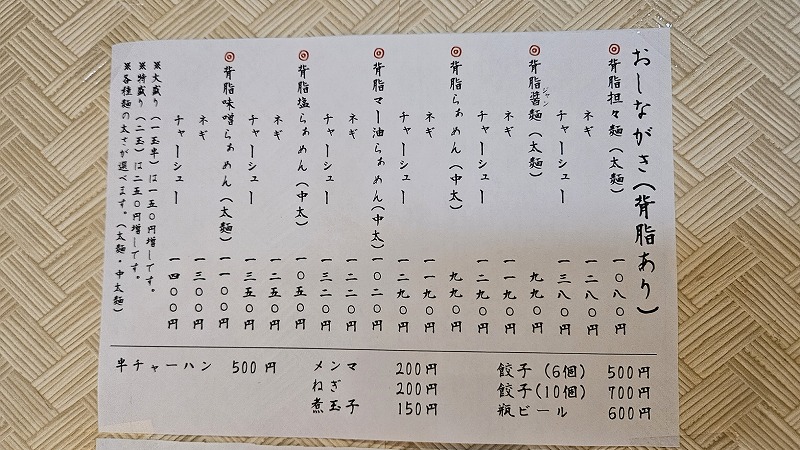 おしながき(背脂あり)
◎背脂担々麺(太麺) 一〇八〇円
ネギ 一二八〇円
チャーシュー 一三八〇円
◎背脂醤麺(太麺) 九九〇円
ジャン
ネギ 一一九〇円
チャーシュー 一二九〇円
◎背脂らぁめん(中太) 九九〇円
ネギ 一一九〇円
チャーシュー 一二九〇円
◎背脂マー油らぁめん(中太) 一〇二〇円
ネギ 一二二〇円
チャーシュー 一三二〇円
◎背脂塩らぁめん(中太) 一〇五〇円
ネギ 一二五〇円
チャーシュー 一三五〇円
◎背脂味噌らぁめん(太麺) 一一〇〇円
ネギ 一三〇〇円
チャーシュー 一四〇〇円
※大盛り(一玉半)は一五〇円増しです。
※特盛り(二玉)は二五〇円増しです。
※各種麺の太さが選べます。(太麺・中太麺)
半チャーハン 500円
メンマ 200円
ねぎ 200円
煮玉子 150円
餃子(6個) 500円
餃子(10個) 700円
瓶ビール 600円